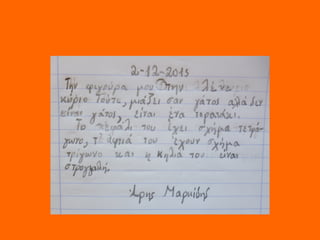 2-12-2015
Την φιγούρα μου την λένε
κύριο Τούτς, μιάζει σαν γάτος αλλά δεν
είναι γάτος, είναι ένα τερατάκι.
Το κεφάλι του έχει σχήμα τετρά-
γωνο, τα αφτιά του έχουν σχήμα
τρίγωνο και η κηλιά του είναι
στρογγυλή.
Άρης Μαρκίδης